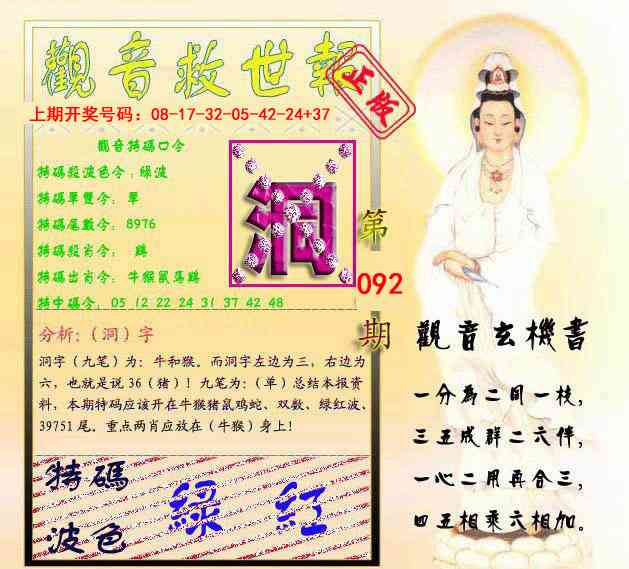 觀音救世報
正版
上期开奖号码：08-17-32-05-42-24+37
觀音特碼口令
特碼段波色令：綠波
特碼單雙令：單
特碼尾數令：8976
特碼段肖令：鷄
特碼出肖令：牛猴鼠馬鷄
特中碼令：05 12 22 24 31 37 42 48
洞
第
092
期
分析：（洞）字
洞字（九笔）为：牛和猴。而洞字左边为三，右边为
六，也就是说36（猪）！九笔为：（单）总结本报资
料，本期特码应该开在牛猴猪鼠鸡蛇、双数、绿红波、
39751尾。重点两肖应放在（牛猴）身上！
特碼
波色
綠 紅
觀音玄機書
一分為二間一枝，
三五成群二六伴，
一心二用再合三，
四五相乘六相加。